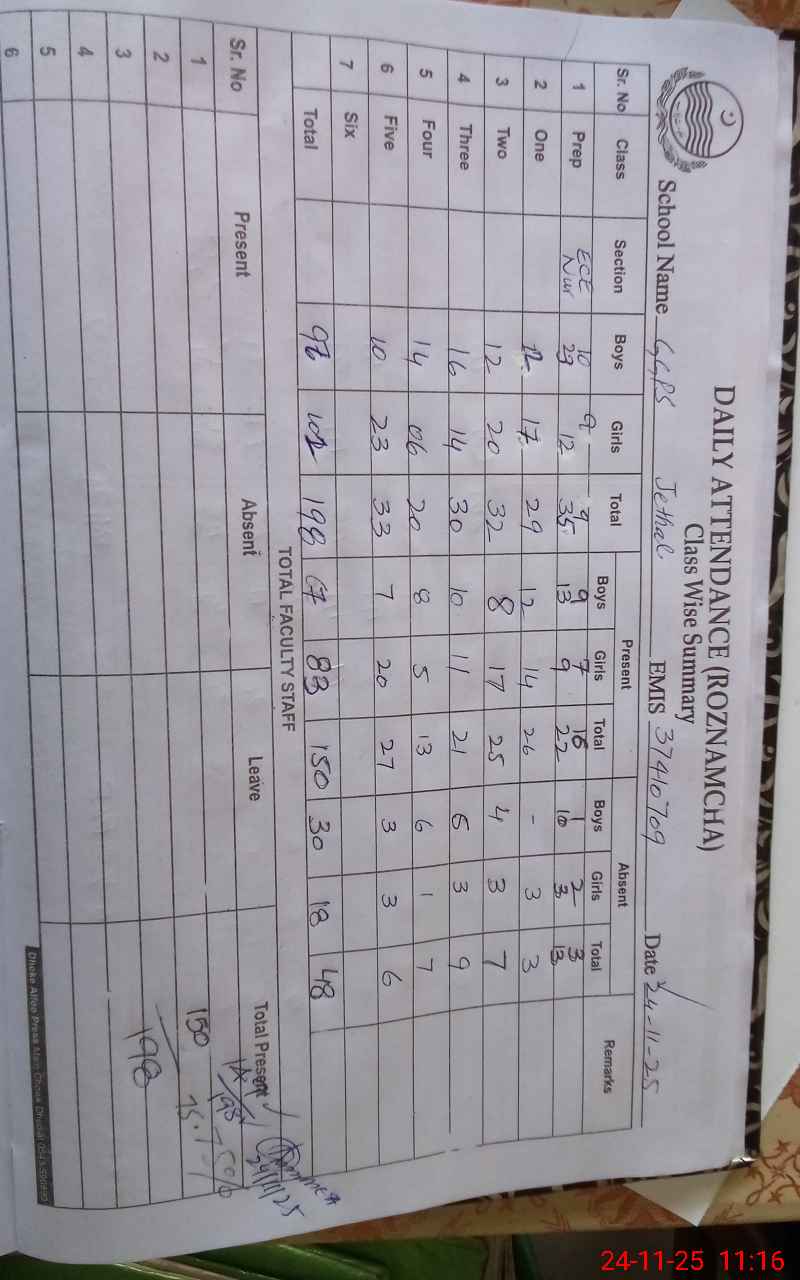 DAILY ATTENDANCE (ROZNAMCHA)
Class Wise Summary
School Name GGPS Jethal EMIS 37410709 Date 24-11-25
Sr. No Class Section Boys Girls Total Present Absent Remarks
Boys Girls Total Boys Girls Total
1 Prep ECE 10 9 9 7 16 1 2 3
Nur 23 12 35 13 9 22 10 3 13
2 One 12 17 29 12 14 26 - 3 3
3 Two 12 20 32 8 17 25 4 3 7
4 Three 16 14 30 10 11 21 6 3 9
5 Four 14 06 20 8 5 13 6 1 7
6 Five 10 23 33 7 20 27 3 3 6
7 Six
Total 97 101 198 67 83 150 30 18 48
TOTAL FACULTY STAFF
Sr. No Present Absent Leave Total Present
24/11/25
1
150 75.75%
2
198
3
4
5
6
24-11-25 11:16